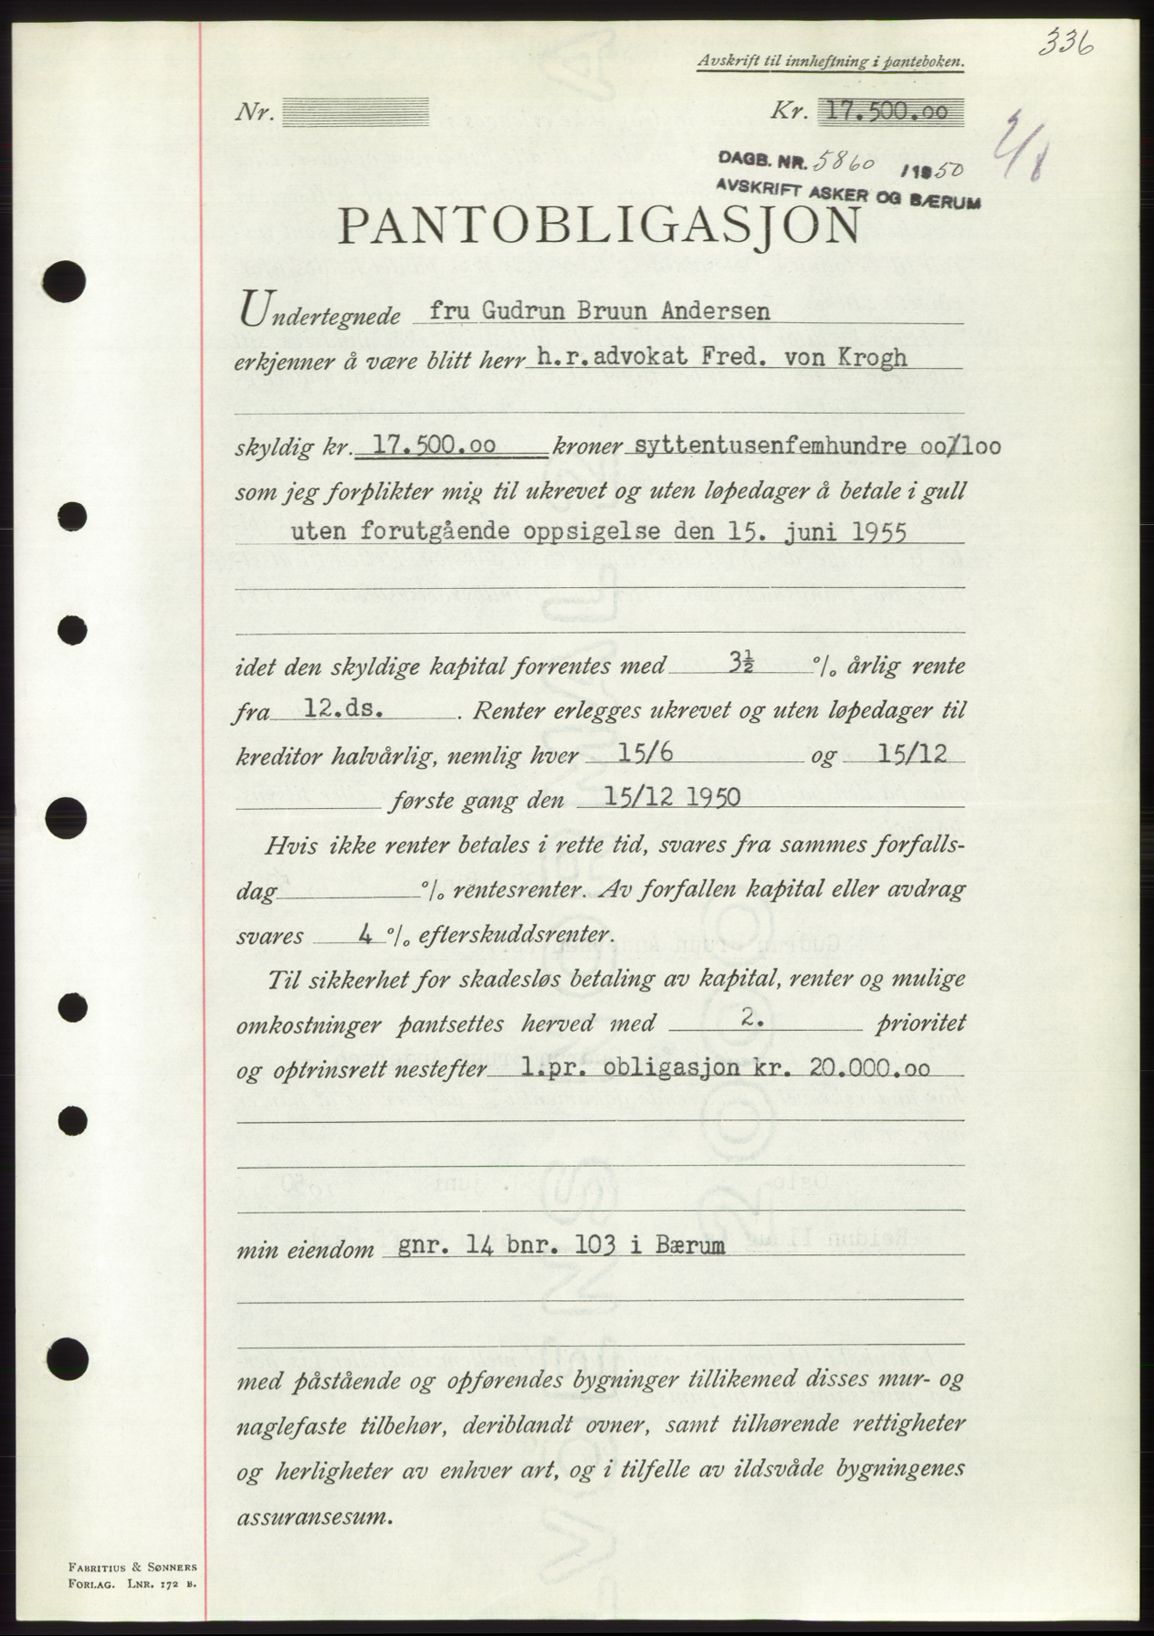 336
Avskrift til innheftning i panteboken.
Nr. Kr. 17.500.oo
DAGB. NR. 5860 /1950
AVSKRIFT ASKER OG BÆRUM
PANTOBLIGASJON
Undertegnede fru Gudrun Bruun Andersen
erkjenner å være blitt herr h.r.advokat Fred. von Krogh
skyldig kr. 17.500.oo kroner syttentusenfemhundre oo/loo
som jeg forplikter mig til ukrevet og uten løpedager å betale i gull
uten forutgående oppsigelse den 15. juni 1955
idet den skyldige kapital forrentes med 3½ % årlig rente
fra 12.ds. . Renter erlegges ukrevet og uten løpedager til
kreditor halvårlig, nemlig hver 15/6 og 15/12
første gang den 15/12 1950
Hvis ikke renter betales i rette tid, svares fra sammes forfalls-
dag % rentesrenter. Av forfallen kapital eller avdrag
svares 4 % efterskuddsrenter.
Til sikkerhet for skadesløs betaling av kapital, renter og mulige
omkostninger pantsettes herved med 2. prioritet
og optrinsrett nestefter 1.pr. obligasjon kr. 20.000.oo
min eiendom gnr. 14 bnr. 103 i Bærum
med påstående og opførendes bygninger tillikemed disses mur- og
naglefaste tilbehør, deriblandt ovner, samt tilhørende rettigheter
og herligheter av enhver art, og i tilfelle av ildsvåde bygningenes
assuransesum.
FABRITIUS & SØNNERS
FORLAG. LNR. 172 B.